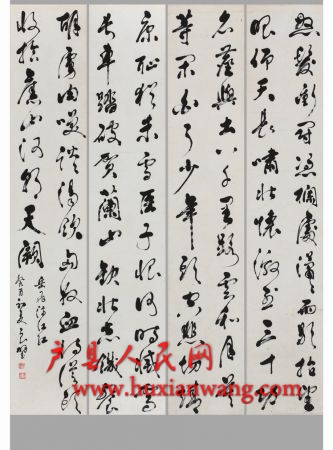 怒髮衝冠憑欄處瀟瀟雨歇抬望
眼仰天長嘯壯懷激烈三十功
名塵與土八千里路雲和月莫
等閒白了少年頭空悲切靖
康恥猶未雪臣子恨何時滅駕
長車踏破賀蘭山缺壯志飢餐
胡虜肉笑談渴飲匈奴血待從頭
收拾舊山河朝天闕
岳飛滿江紅
初夏
户县人民网
www.huxianwang.com